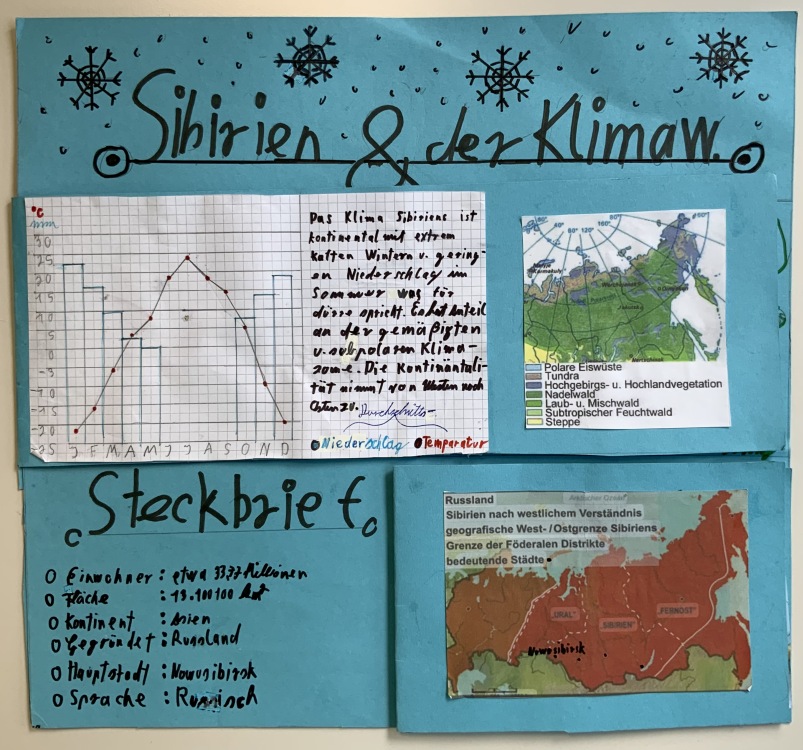 Sibirien & der Klimaw.
°C
mm
30
25
20
15
10
5
0
-5
-10
-15
-20
-25
J F M A M J J A S O N D
Das Klima Sibiriens ist
kontinental mit extrem
kalten Wintern u. gering-
en Niederschlag im
Sommer was für
dürre spricht. Es hat Anteil
an der gemäßigten
u. subpolaren Klima-
zone. Die Kontinäntali-
tät nimmt von Westen nach
Osten zu.
Durchschnitts-
Niederschlag Temperatur
60° 40° 60° 120° 160°
Polare Eiswüste
Tundra
Hochgebirgs- u. Hochlandvegetation
Nadelwald
Laub- u. Mischwald
Subtropischer Feuchtwald
Steppe
Steckbrief
Einwohner: etwa 33,77 Millionen
Fläche : 13.100 100
Kontinent : Asien
Gegründet: Russland
Hauptstadt: Nowosibirsk
Sprache : Russisch
Russland
Sibirien nach westlichem Verständnis
geografische West- /Ostgrenze Sibiriens
Grenze der Föderalen Distrikte
bedeutende Städte
„URAL" „SIBIRIEN" „FERNOST"
Nowosibirsk